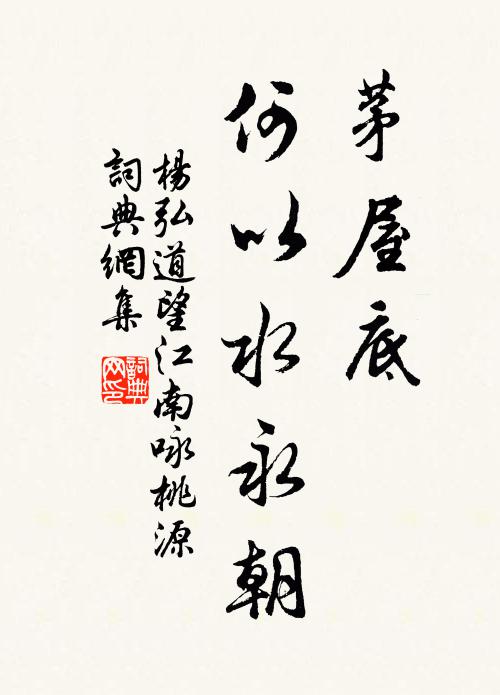 茅屋底
何以水永朝
楊弘道望江南咏桃源
詞典網集
詞典网印